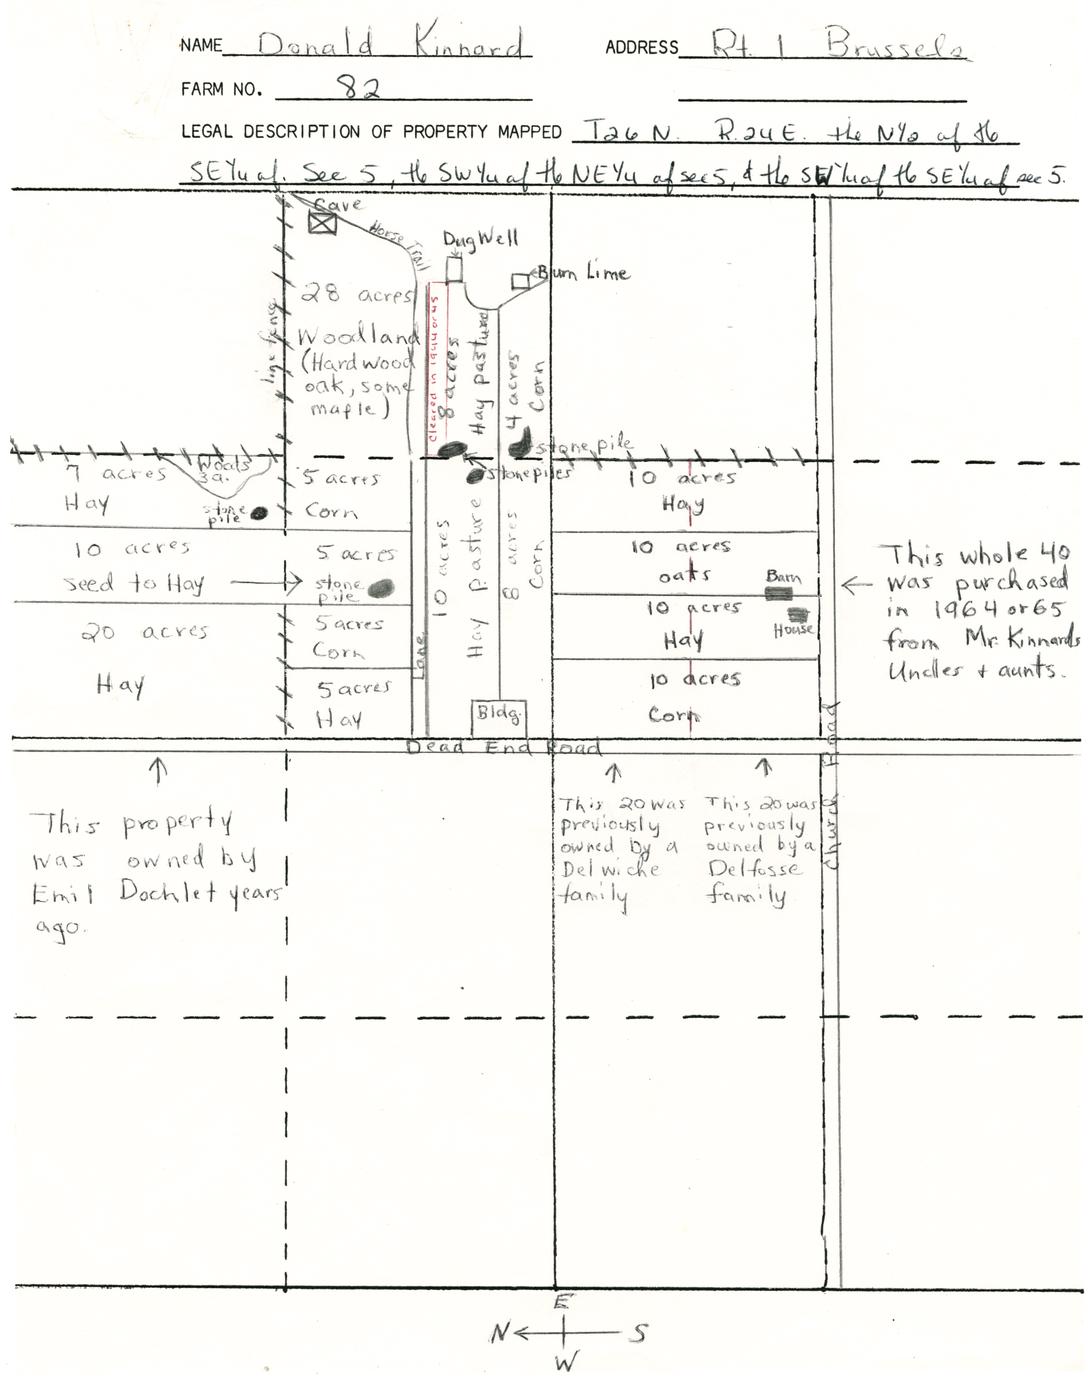 NAME Donald Kinnard ADDRESS Rt. 1 Brussels
FARM NO. 82
LEGAL DESCRIPTION OF PROPERTY MAPPED T26 N. R.24E. the N1/2 of the
SE1/4 of. Sec 5, the SW1/4 of the NE1/4 of sec 5, & the SW1/4 of the SE1/4 of sec 5.
Cave
Horse Trail
Dug Well
Burn Lime
line fence
28 acres
Woodland
(Hardwood
oak, some
maple)
Cleared in 1944 or 45
8 acres
Hay pasture
4 acres
Corn
stone pile
stonepiles
7 acres
Hay
Woods
3a.
stone
pile
5 acres
Corn
10 acres
Hay
10 acres
seed to Hay
5 acres
stone
pile
10 acres
Hay Pasture
8 acres
Corn
10 acres
oats
Barn
10 acres
Hay
House
This whole 40
was purchased
in 1964 or 65
from Mr. Kinnards
Uncles + aunts.
20 acres
Hay
5 acres
Corn
Lane
5 acres
Hay
Bldg.
10 acres
Corn
Dead End Road
Church Road
This property
was owned by
Emil Dochlet years
ago.
This 20 was
previously
owned by a
Delwiche
family
This 20 was
previously
owned by a
Delfosse
family
E
N S
W